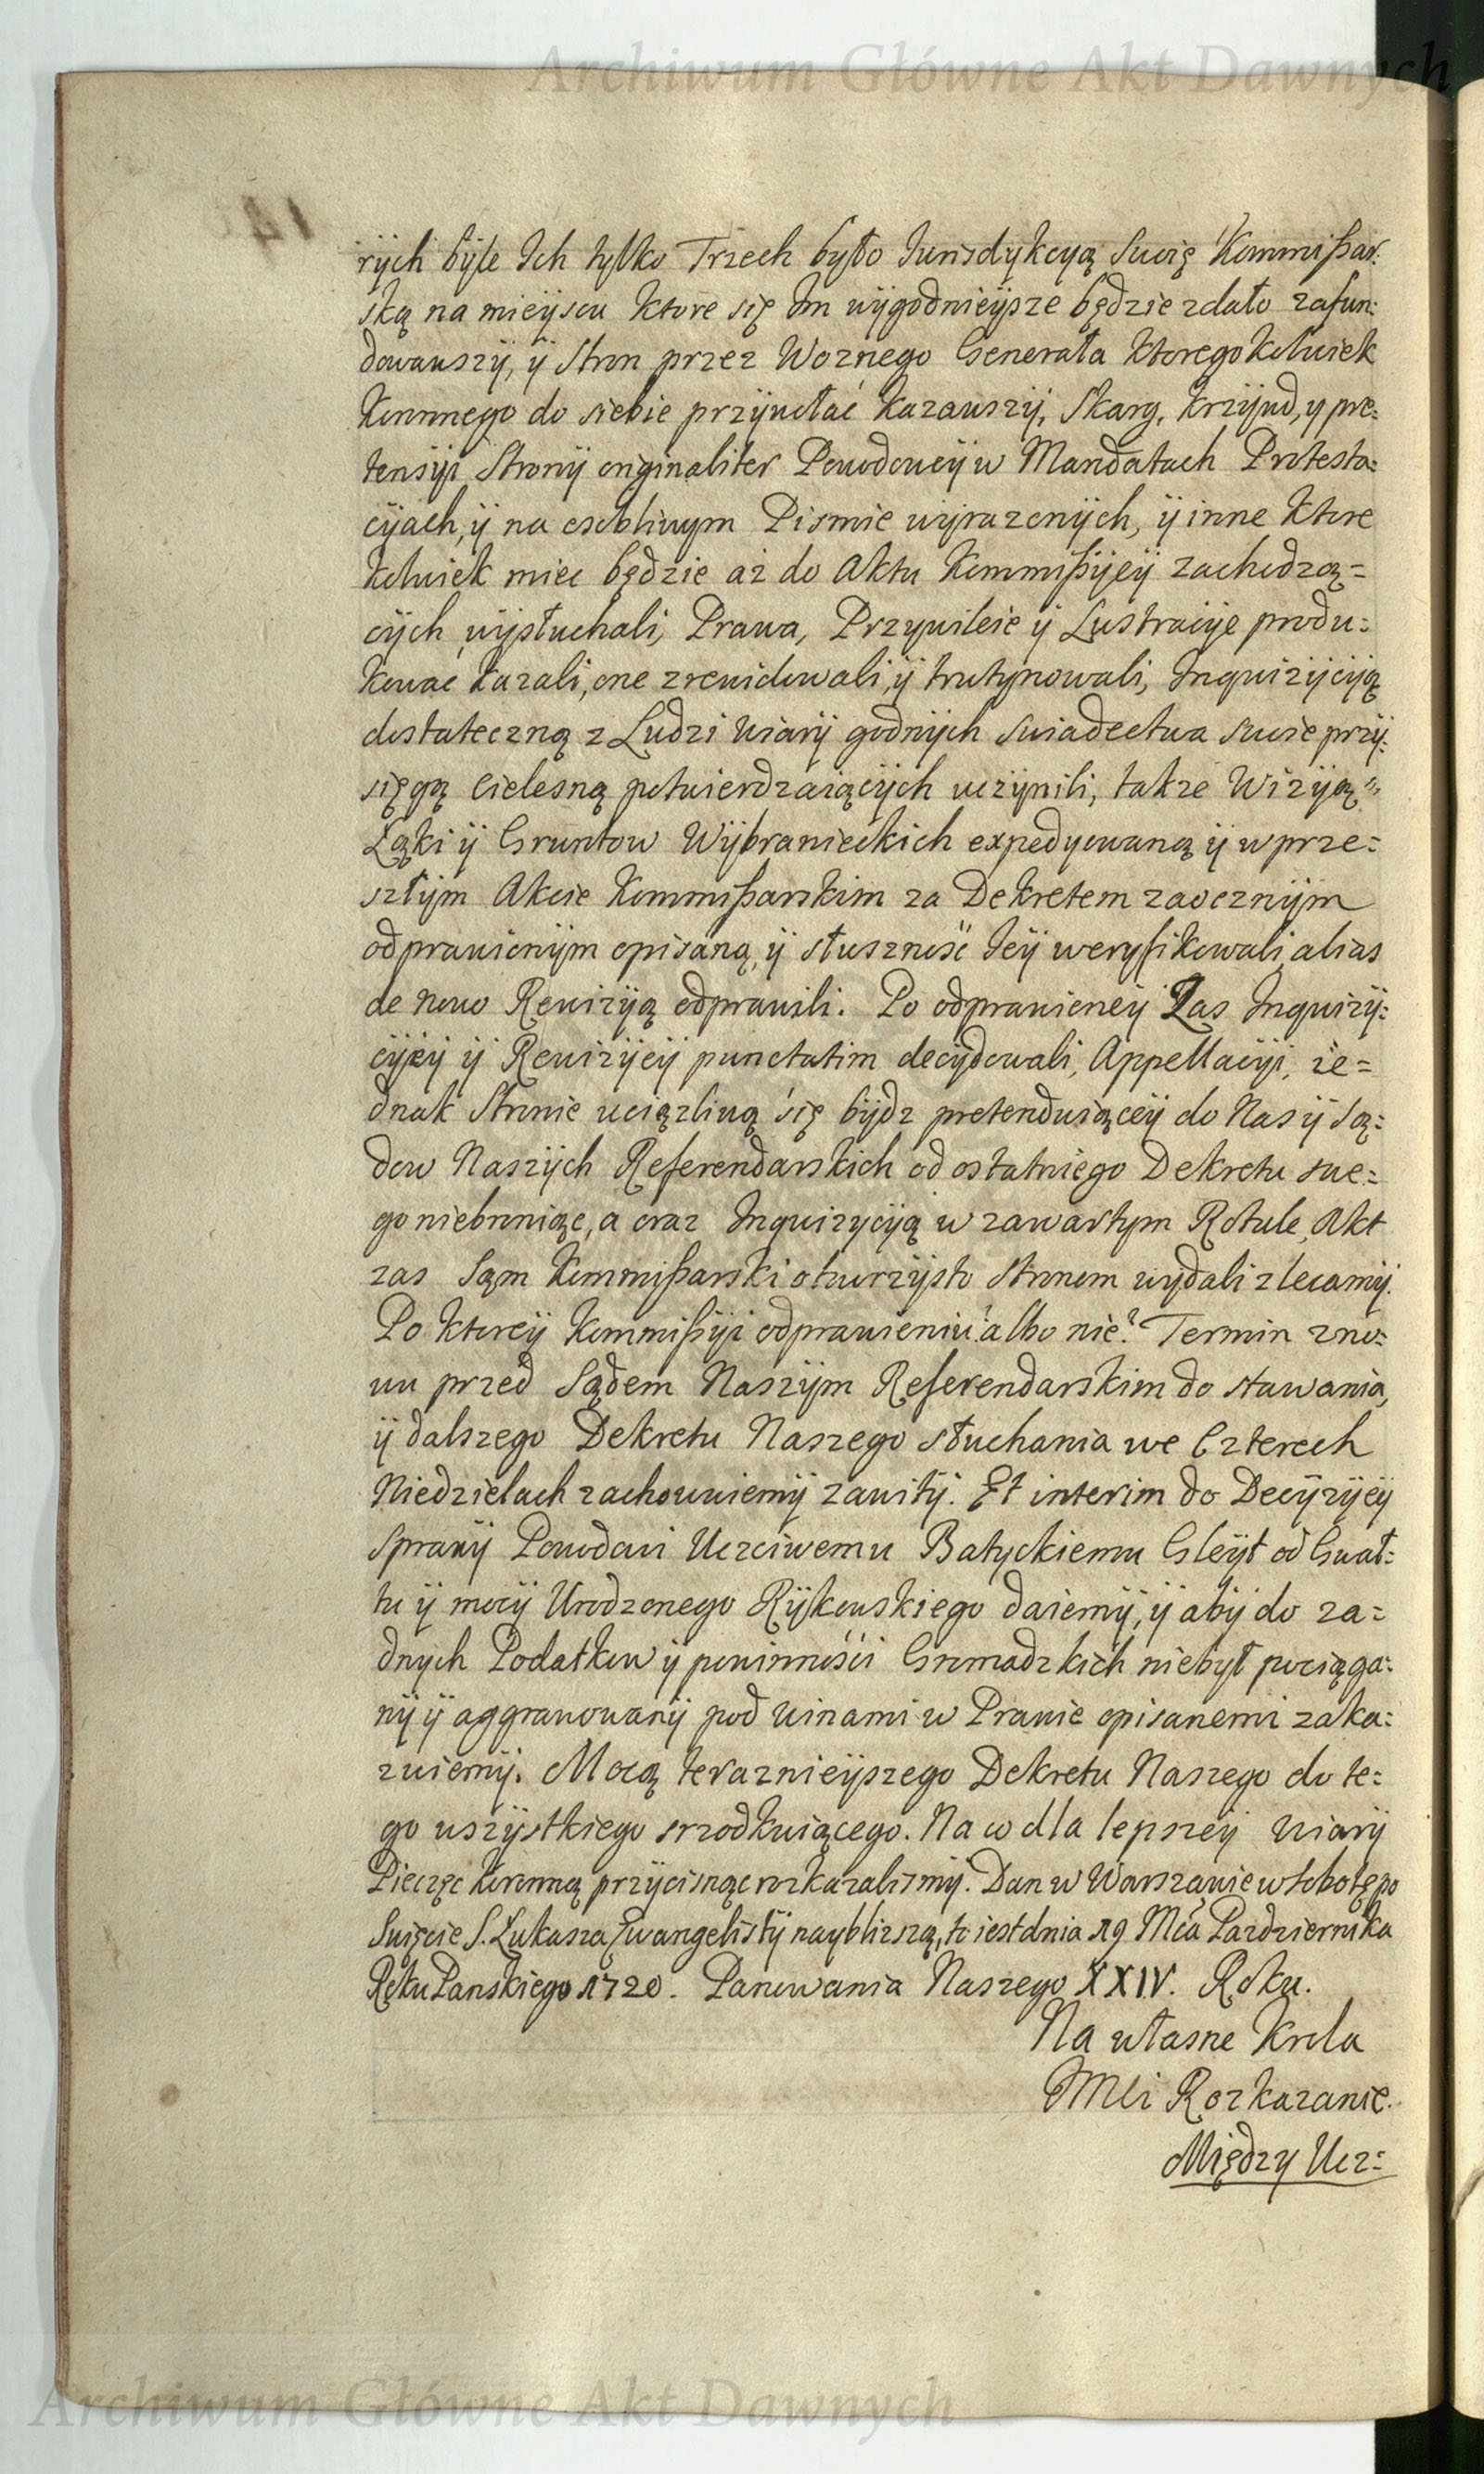 Archiwum Główne Akt Dawnych
rÿch bÿle Ich tylko Trzech było Iurisdykcyą Swoię Kommißar:
ską na mieÿscu ktore się Im wÿgodnieÿsze będzie zdało zafun:
dowawszÿ, ÿ Stron przez Woznego Generała ktoregokolwiek
Koronnego do siebie przÿwołać kazawszÿ, Skarg, krzÿwd, y pre:
tensÿi Stronÿ originaliter Powodoweÿ w Mandatach Protesta:
cÿach, ÿ na osobliwym Pismie wÿrazonÿch, ÿ inne ktore
kolwiek miec będzie aż do Aktu Kommißÿeÿ zachodzą=
cÿch wÿsłuchali, Prawa, Przywileie ÿ Lustracÿe produ:
kowac kazali, one zrewidowali, ÿ trutynowali, Inquizÿcÿą
dostateczną z Ludzi Wiarÿ godnÿch swiadectwa swoie przÿ:
sięgą cielesną potwierdzaiącÿch uczÿnili, takze Wizÿą
Łąki ÿ Gruntow Wÿbranieckich expedyowaną ÿ w prze=
szłÿm Akcie Kommißarskim za Dekretem zaocznÿm
odprawionÿm opisaną, ÿ słusznosć Ieÿ weryfikowali, alias
de novo Rewizÿą odprawili. Po odprawioneÿ Zas Inquizÿ:
cÿeÿ ÿ Rewizÿeÿ punctatim decÿdowali, Appellacÿi, ie=
dnak Stronie uciązliwą się bÿdz pretenduiąceÿ do Nas ÿ Są:
dow Naszÿch Referendarskich od ostatniego Dekretu swe=
go niebroniąc, a oraz Inquizycÿą w zawartym Rotule, Akt
zas Sąm Kommißarski otworzÿsto Stronom wydali zlecamÿ.
Po ktoreÿ Kommißÿi odprawieniu? albo nie? Termin zno:
wu przed Sądem Naszÿm Referendarskim do stawania,
ÿ dalszego Dekretu Naszego słuchania we Czterech
Niedzielach zachowuiemÿ zawitÿ. Et interim do Decÿzÿeÿ
Sprawÿ Powodowi Uczciwemu Batyckiemu Gleÿt od Gwał:
tu ÿ mocÿ Urodzonego Rÿkowskiego daiemÿ, ÿ abÿ do za=
dnych Podatkow ÿ powinnosći Gromadzkich niebył pociąga:
nÿ ÿ aggrawowanÿ pod winami w Prawie opisanemi zaka:
zuiemÿ. Mocą terazniejszego Dekretu Naszego do te=
go wszÿstkiego srzodkuiącego. Na co dla lepszeÿ wiarÿ
Pieczęc Koronną przÿcisnąc rozkazalismÿ. Dan w Warszawie w Sobotę po
Swięcie S. Łukasza Ewangelistÿ nayblizszą, to iest dnia 19 Mca Pazdziernika
Roku Panskiego 1720. Panowania Naszego XXIV. Roku.
Na własne Krola
IMci Rozkazanie.
Między Ucz=
Archiwum Główne Akt Dawnych